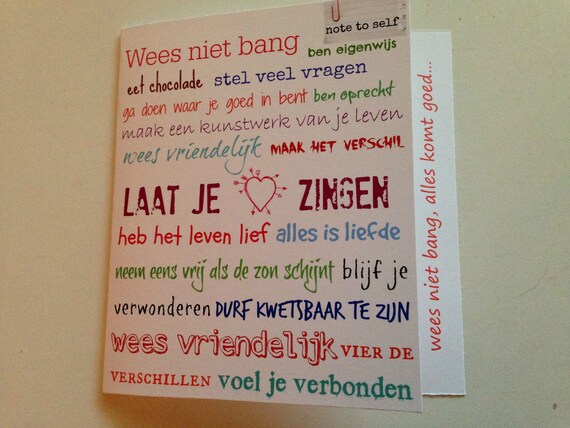 note to self
Wees niet bang ben eigenwijs
eet chocolade stel veel vragen
ga doen waar je goed in bent ben oprecht
maak een kunstwerk van je leven
wees vriendelijk MAAK HET VERSCHIL
LAAT JE ZINGEN
heb het leven lief alles is liefde
neem eens vrij als de zon schijnt blijf je
verwonderen DURF KWETSBAAR TE ZIJN
wees vriendelijk VIER DE
VERSCHILLEN voel je verbonden
wees niet bang, alles komt goed...